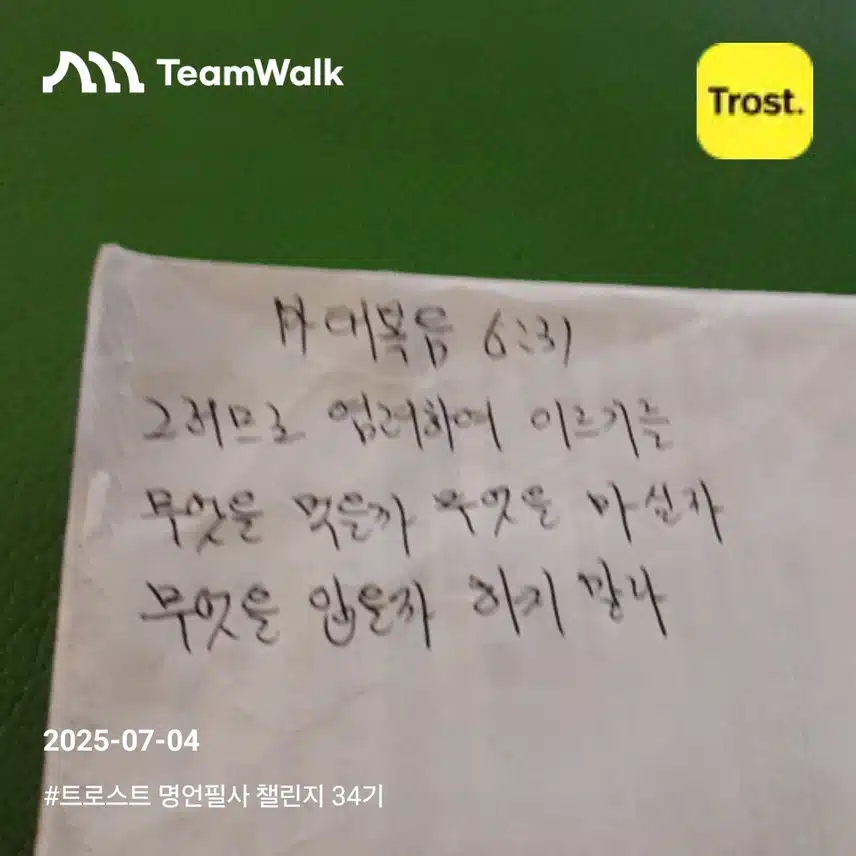 TeamWalk
Trost.
마태복음 6:31
그러므로 염려하여 이르기를
무엇을 먹을까 무엇을 마실까
무엇을 입을까 하지 말라
2025-07-04
#트로스트 명언필사 챌린지 34기